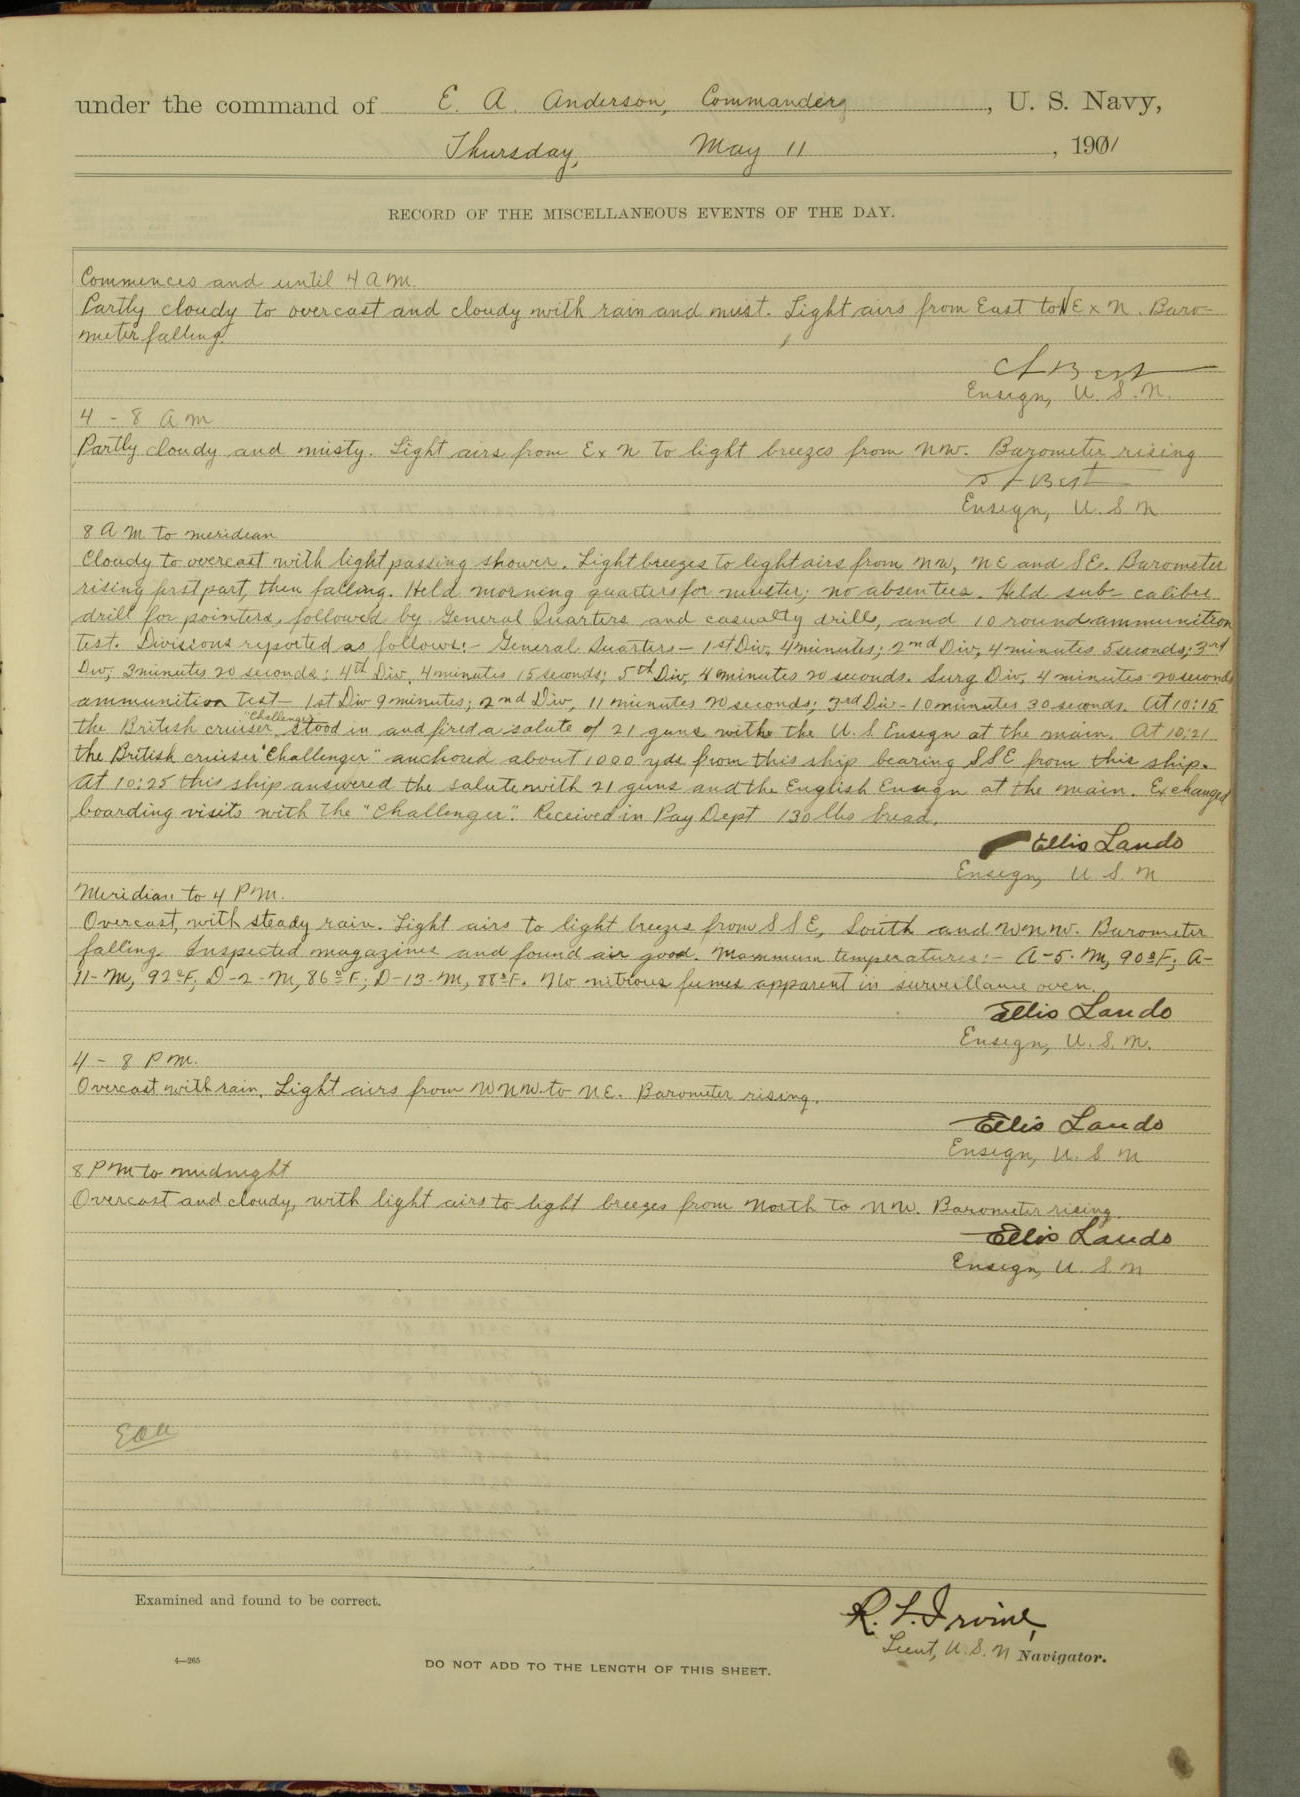 under the command of E. A. Anderson, Commander, U. S. Navy,
Thursday, May 11, 1901
RECORD OF THE MISCELLANEOUS EVENTS OF THE DAY.
Commences and until 4 A M.
Partly cloudy to overcast and cloudy with rain and mist. Light airs from East to NE x N. Baro-
meter falling.
C A Best
Ensign, U. S. N.
4 - 8 A M
Partly cloudy and misty. Light airs from E x N to light breezes from NW. Barometer rising
Best
Ensign, U S N
8 A M to meridian
Cloudy to overcast with light passing shower. Light breezes to light airs from NW, NE and SE. Barometer
rising first part, then falling. Held morning quarters for muster; no absentees. Held sub-caliber
drill for pointers, followed by General Quarters and casualty drills, and 10 round ammunition
test. Divisions reported as follows:- General Quarters - 1st Div, 4 minutes; 2nd Div, 4 minutes 5 seconds; 3rd
Div, 3 minutes 20 seconds; 4th Div, 4 minutes 15 seconds; 5th Div, 4 minutes 20 seconds. Surg Div, 4 minutes 20 seconds
ammunition test - 1st Div 9 minutes; 2nd Div, 11 minutes 20 seconds; 3rd Div - 10 minutes 30 seconds. At 10:15
the British cruiser "Challenger" stood in and fired a salute of 21 guns with the U. S. Ensign at the main. At 10:21
the British cruiser "Challenger" anchored about 1000 yds from this ship bearing SSE from this ship.
At 10:25 this ship answered the salute with 21 guns and the English Ensign at the main. Exchanged
boarding visits with the "Challenger". Received in Pay Dept 130 lbs bread.
Ellis Lando
Ensign, U S. N
Meridian to 4 P M.
Overcast, with steady rain. Light airs to light breezes from S S E, South and WNW. Barometer
falling. Inspected magazines and found air good. Maximum temperatures:- A-5-M, 90°F; A-
11-M, 92°F; D-2-M, 86°F; D-13-M, 88°F. No nitrous fumes apparent in surveillance oven.
Ellis Lando
Ensign, U. S. N.
4 - 8 P M.
Overcast with rain. Light airs from WNW to NE. Barometer rising.
Ellis Lando
Ensign, U. S N
8 P M to midnight
Overcast and cloudy, with light airs to light breezes from North to NW. Barometer rising.
Ellis Lando
Ensign, U S N
Examined and found to be correct.
R. L. Irvine,
Lieut, U. S. N Navigator.
4—265
DO NOT ADD TO THE LENGTH OF THIS SHEET.